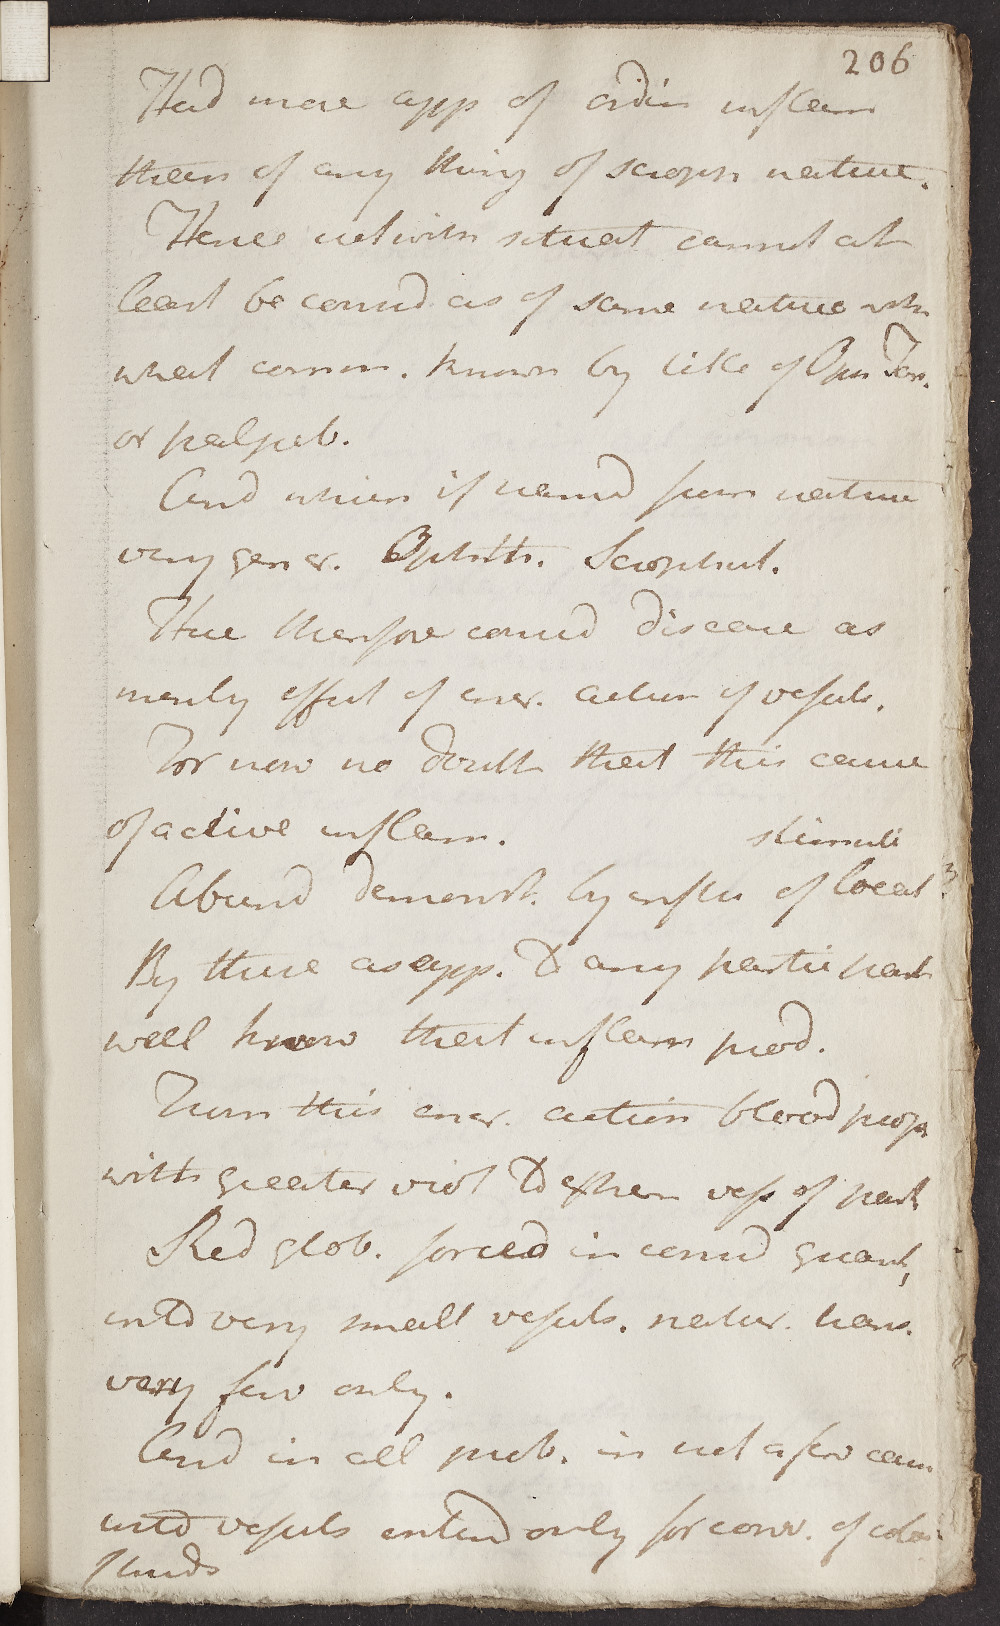 206
Had more app of ordin inflam
than of any thing of scroph nature.
Hence notwith situat cannot at
least be consid as of same nature with
what comm. known by title of Oph Tars.
or palpeb.
And which if namd from nature
very gener. Ophth. Scrophul.
Here therefore consid disease as
merely effect of incr. action of vessels.
For now no doubt that this cause
of active inflam.
stimuli
Abund demonst. by influ of local
By these as app. to any partic part
well know that inflam prod.
From this incr. action blood prop
with greater viol to extrem vess of part
Red glob. forced in consid quant,
into very small vessels. natur. trans.
very few only.
And in all prob. in not a few cases
into vessels intend only for conv. of colos
fluids